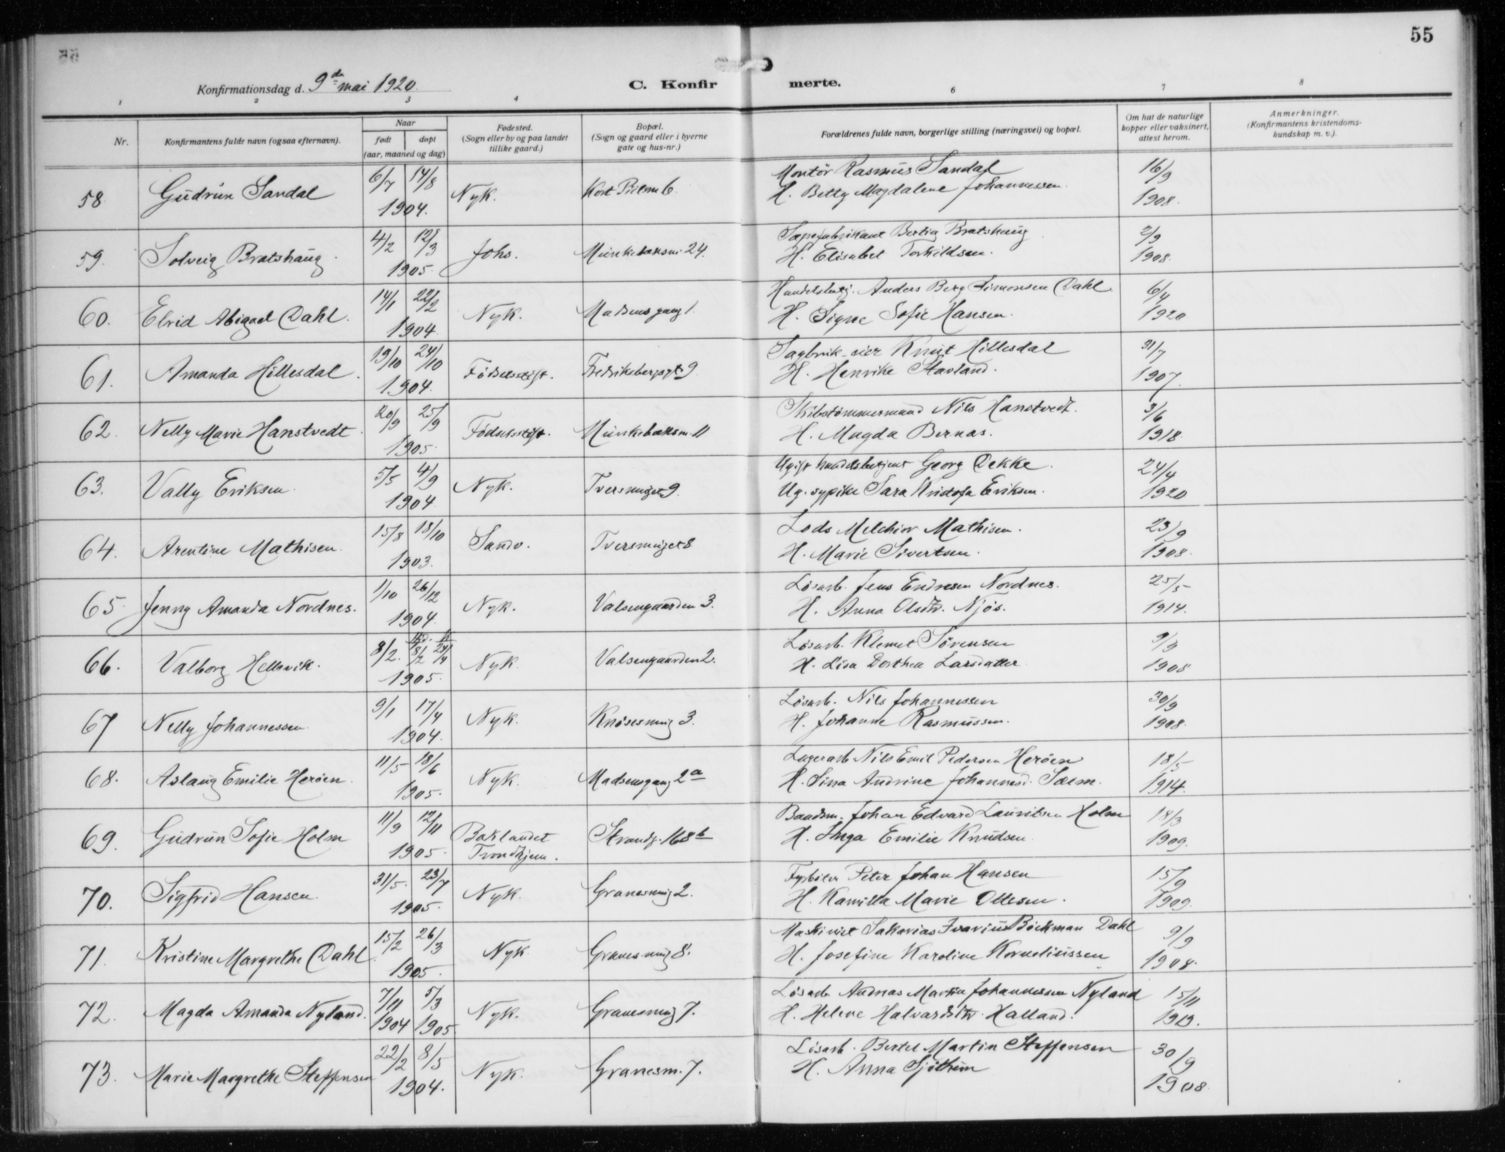 55
Konfirmationsdag d. 9de mai 1920.
C. Konfirmerte.
1 2 3 4 6 7 8
Nr.
Konfirmantens fulde navn (ogsaa efternavn).
Naar
født døpt
(aar, maaned og dag)
Fødested.
(Sogn eller by og paa landet
tillike gaard.)
Bopæl.
(Sogn og gaard eller i byerne
gate og hus-nr.)
Forældrenes fulde navn, borgerlige stilling (næringsvei) og bopæl.
Om hat de naturlige
kopper eller vaksinert,
attest herom.
Anmerkninger.
(Konfirmantens kristendoms-
kundskap m. v.).
58 Gudrun Sandal 6/7 14/8 1904. Nyk. 6
Montør Rasmus Sandal 16/9
H. Betty Magdalene Johannessen 1908.
59. Solveig Bratshaug. 4/2 12/3 1905 Johs. 24.
Bertin Bratshaug 2/9
H. Elisabet Torkildsen. 1908
60. Elvid Abigael Dahl. 14/1 22/2 1904 Nyk. Madsensgang 1.
Anders Berg Simonsen Dahl 6/4
H. Signe Sofie Hansen. 1920
61. Amanda Hillesdal. 19/10 24/10 1904. Fødselsstift. Fredriksbergsgt 9
Knut Hillesdal 31/7
H. Henrike Stavland. 1907.
62. Nelly Marie Hanstvedt 20/9 25/9 1905. Fødselsstift. 11
Skibstømmermand Nils Hanstvedt. 3/6
H. Magda Bernas. 1918
63. Vally Eriksen. 5/5 4/9 1904 Nyk. 9.
Georg Dekke. 24/4
Sara Eriksen. 1920
64. Arentine Mathisen. 15/8 18/10 1903. Sandv. 8
Lods Melchior Mathisen. 23/9
H. Marie Sivertsen. 1908.
65. Jenny Amanda Nordnes. 1/10 26/12 1904. Nyk. Valsengaarden 3.
Løsarb. Jens Endresen Nordnes. 25/5
H. Anna Olsdtr. Njøs. 1914.
66. Valborg Hellevik. 8/2. 1905. Nyk. Valsengaarden 2.
Løsarb. Klemet Sørensen 9/9
H. Lisa Dorthea Larsdatter 1908
67 Nelly Johannessen 9/1 17/4 1904. Nyk. Knøsesmug 3.
Løsarb. Nils Johannessen 30/9
H. Johanne Rasmussen. 1908.
68. Aslaug Emilie Herøen. 11/5 18/6 1905. Nyk. Madsensgang 2a
Lagerarb Nils Emil Pedersen Herøen 18/5
H. Sina Andrine Johannesd. Sæim. 1914.
69. Gudrun Sofie Holm 11/9 12/11 1905. Baklandet Strandg. 168b
Trondhjem.
Baadsm. Johan Edvard Lauritsen Holm 14/3
H. Inga Emilie Knudsen. 1909.
70. Sigfrid Hansen. 31/5. 23/7 1905. Nyk. Granesmug 2.
Fyrbøter Peter Johan Hansen 15/9
H. Kamilla Marie Ottesen. 1909.
71. Kristine Margrethe Dahl 15/2 26/3 1905. Nyk Granesmug 8.
Maskinist Sakarias Bøckman Dahl 9/9
H. Josefine Karoline Korneliussen 1908.
72. Magda Amanda Nyland. 7/11 1904 5/3 1905 Nyk. Granesmug 7.
Løsarb Andreas Martin Johannessen Nyland 15/11
H. Helene Halvardsdtr. Halland. 1913.
73. Marie Margrethe Steffensen 22/2 8/5 1904. Nyk. Granesm. 7.
Løsarb. Bertel Martin Steffensen 30/9
H. Anna Sjøthun 1908